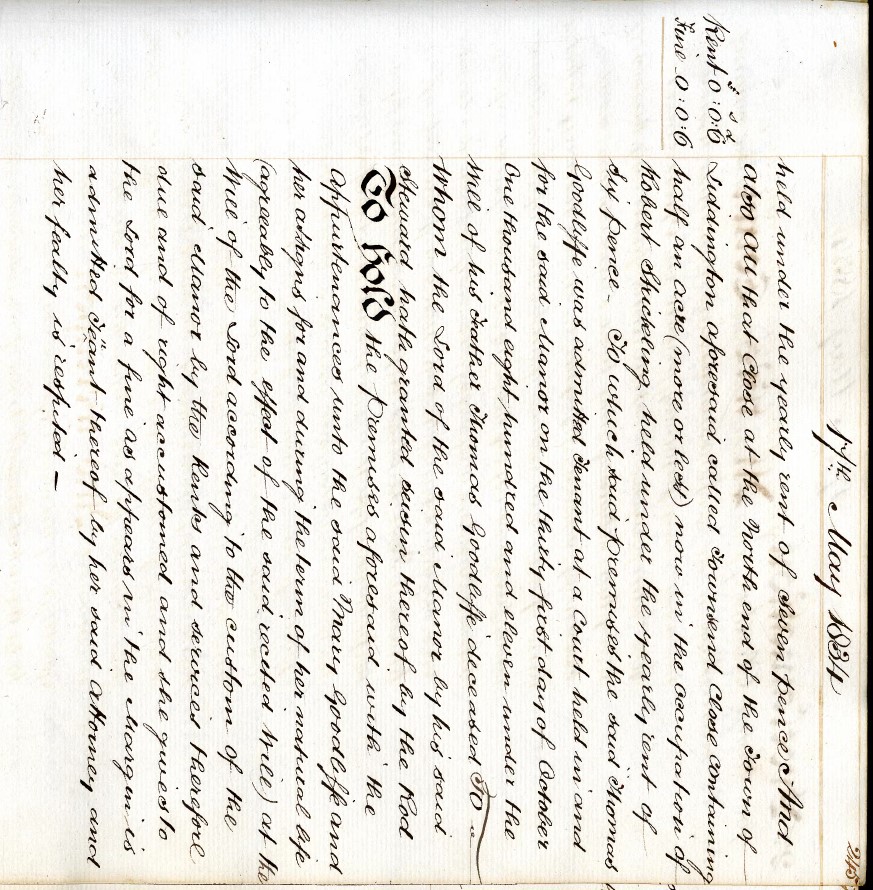 17th May 1834
245
held under the yearly rent of Seven pence And
also all that Close at the North end of the Town of
Liddington aforesaid called Townsend Close containing
Rent 0:0:6
£ s d
half an acre (more or less) now in the occupation of
Fine 0:0:6
Robert Stickling held under the yearly rent of
Six pence – To which said premises the said Thomas
Goodliffe was admitted Tenant at a Court held in and
for the said Manor on the thirty first day of October
One thousand eight hundred and eleven under the
Will of his Father Thomas Goodliffe deceased To
Whom the Lord of the said Manor by his said
Steward hath granted seisin thereof by the Rod
To hold the premises aforesaid with the
Appurtenances unto the said Mary Goodliffe and
her assigns for and during the term of her natural life
(agreeably to the effect of the said recited Will) at the
Will of the Lord according to the custom of the
said Manor by the Rents and services therefore
due and of right accustomed and she gives to
the Lord for a fine as appears in the Margin is
admitted Tenant thereof by her said Attorney and
her fealty is respited –